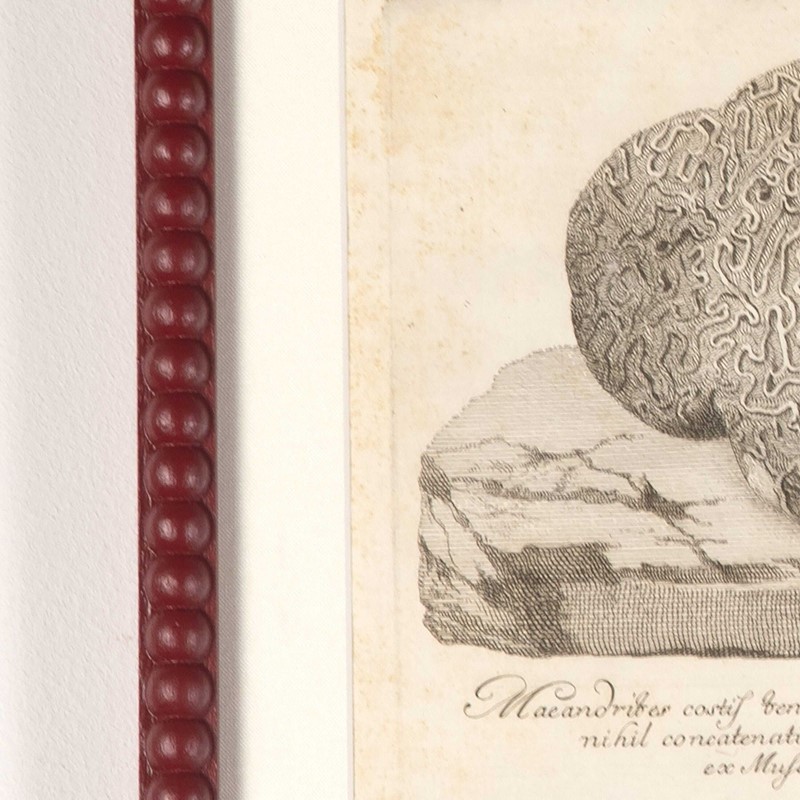 Maeandrites costis ten
nihil concatenat
ex Mus